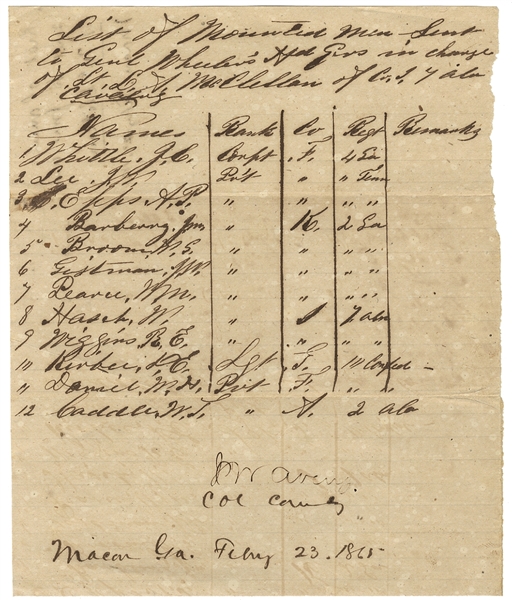 List of Mounted Men Sent
to Genl Wheeler's Hd Qrs in charge
of Lt. L. A. McClellan of Co. I, 7 ala
Cavalry
Names Rank Co Regt Remarks
1 Whittle, J. C. Corpt F. 4 Ga
2 Lee, J. Pvt " " Tenn
3 Epps A. P. " " "
4 Barberry, Jm " K. 2 Ga
5 " Broom, W. G. " " " "
6 Gistman, J. W. " " " "
7 Pearce, Wm. " " " "
8 Hasch, W " I 7 ala
9 Wiggins R. E. " " " "
10 Kirbee, J. E. Sgt F. 10 Confed -
" Daniel, W. H. Pvt F. " "
12 Caddell, W. T. " A. 2 ala
Avery
Col Comdg
Macon Ga. Feby 23. 1865